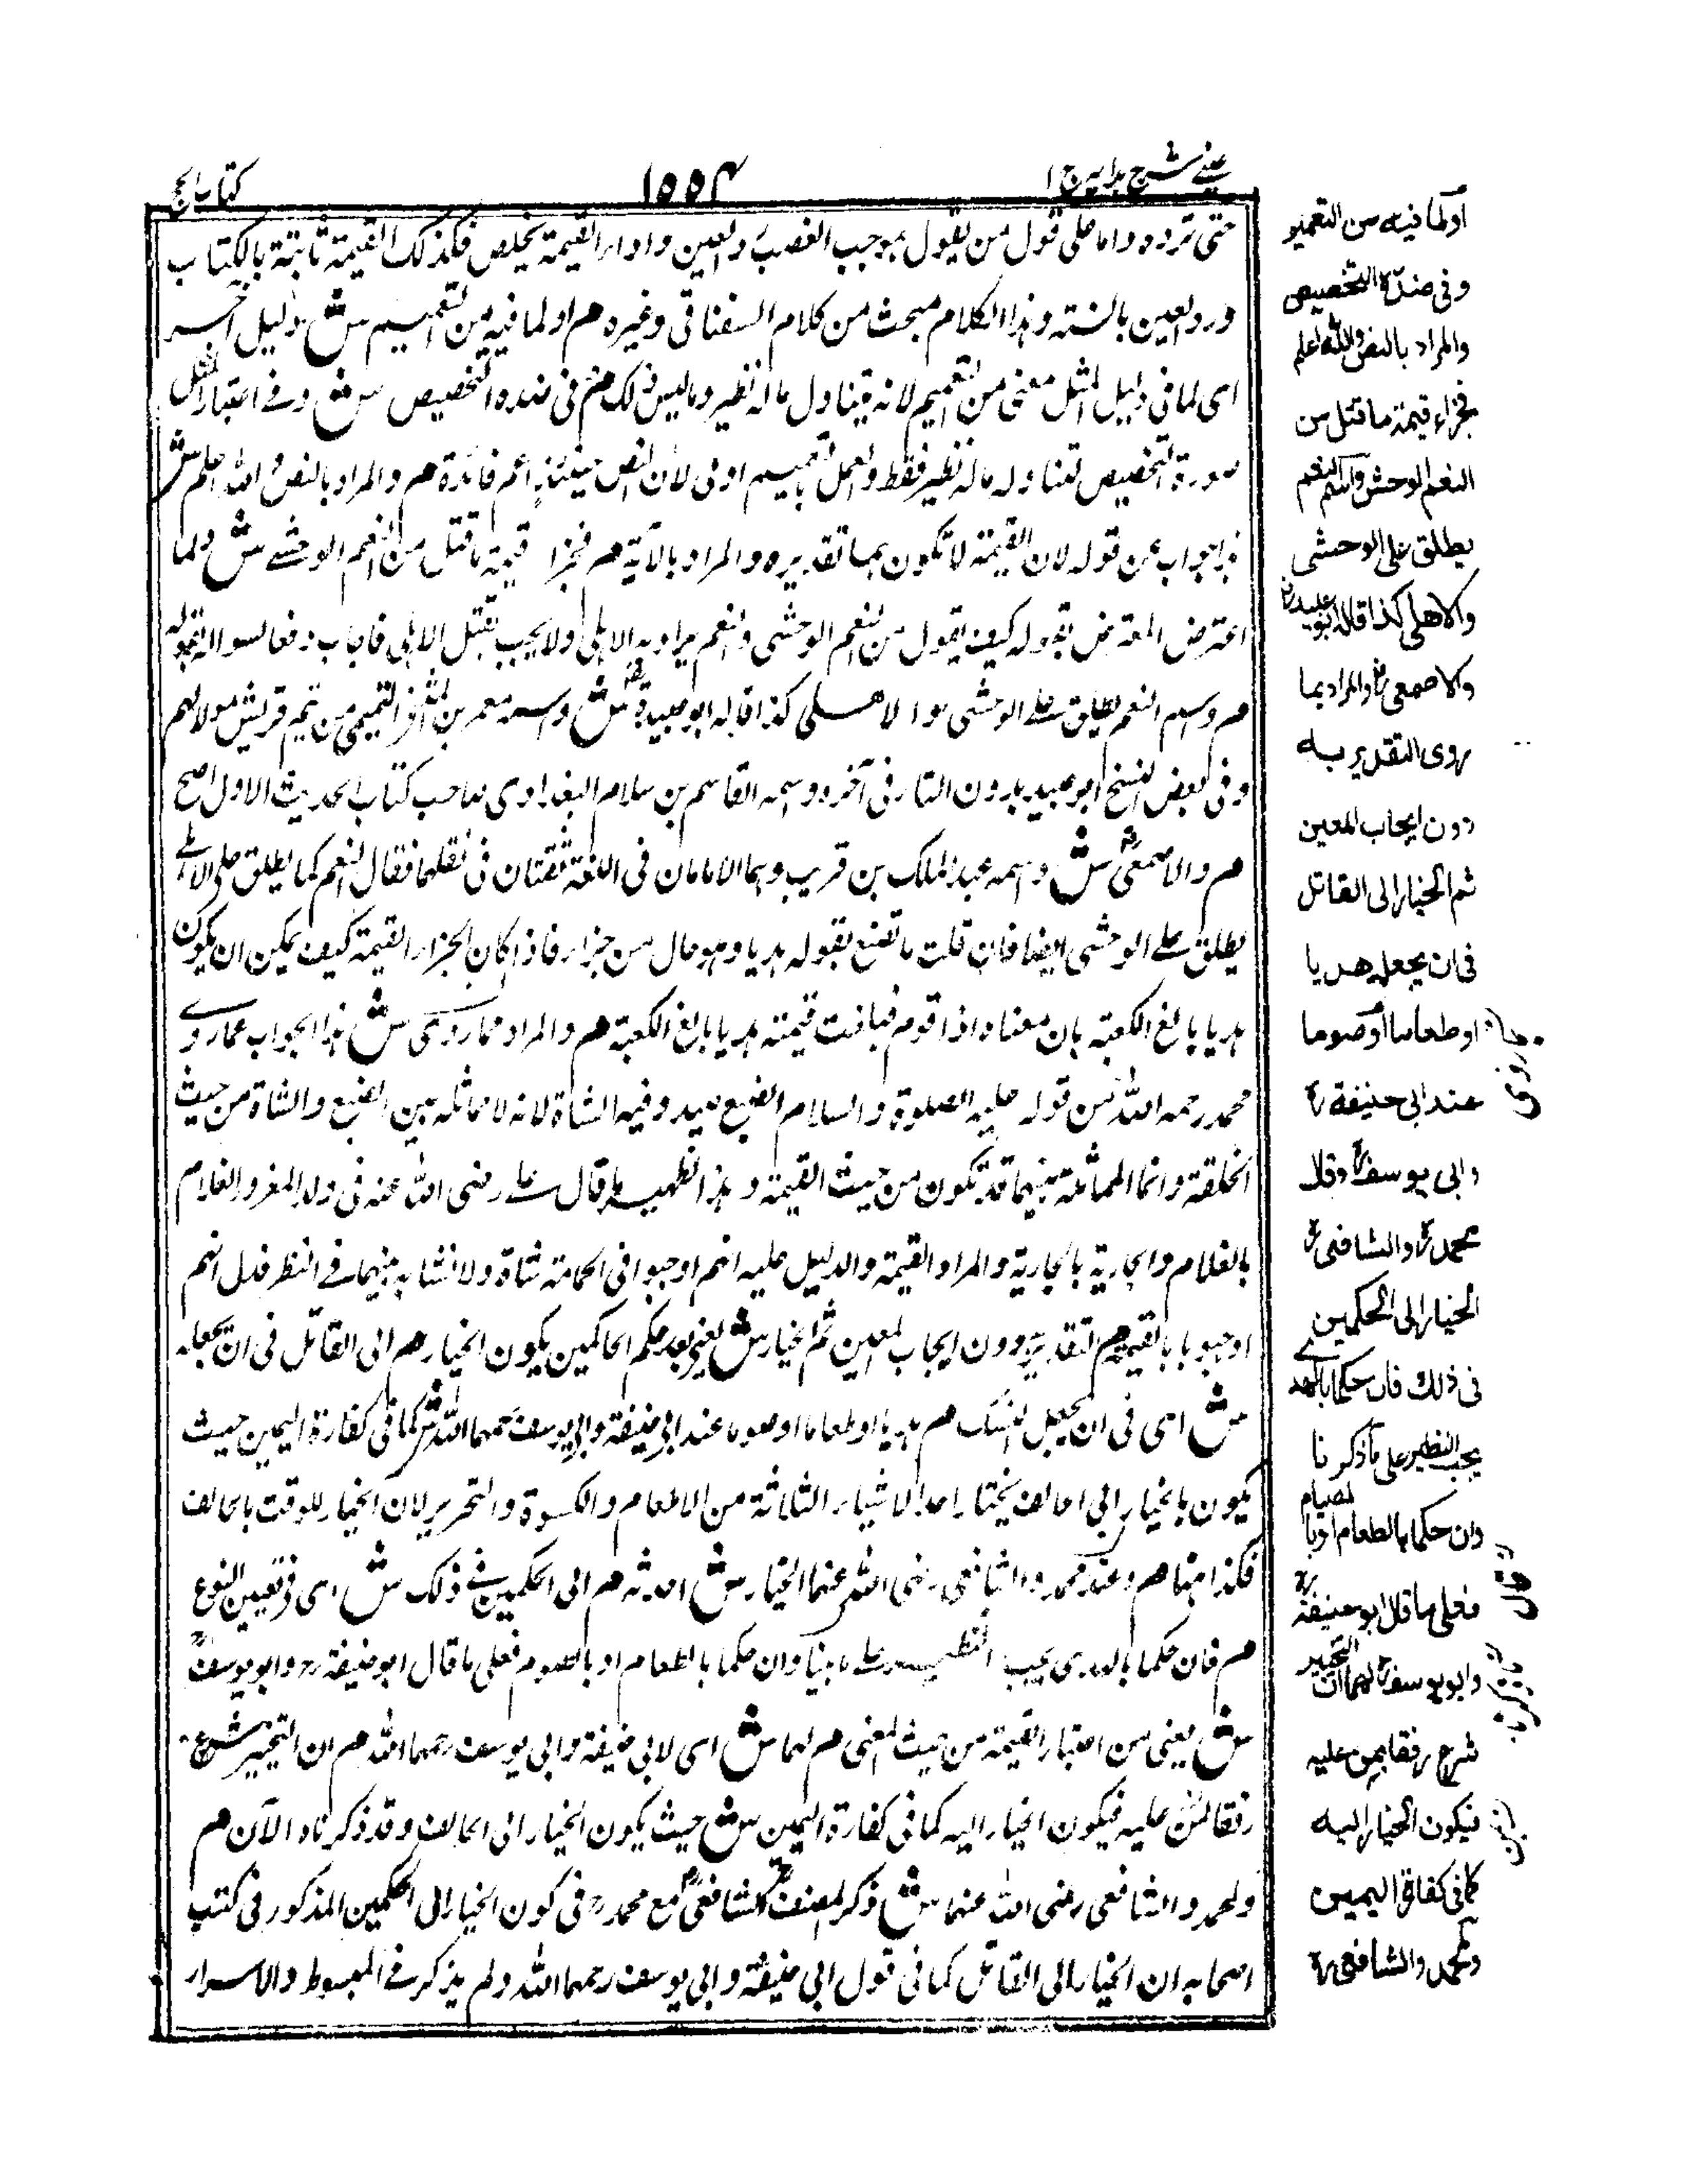 عينى شرح هدايه ج ١
١٥٥٤
كتاب الحج
حتى ترده واما على قول من يقول بموجب الغصب رد العين واداء القيمة يخلص فكذلك القيمة ثابتة بالكتاب
ورد العين بالسنة وهذا الكلام مبحث من كلام السغناقى وغيره م او لما فيه من التعميم ش دليل آخر
اى لما فى دليل المثل معنى من التعميم لانه يتناول ماله نظير وما ليس كذلك م وفى ضده التخصيص ش وفى اعتبار المثل
صورة التخصيص لتناوله ماله نظير فقط والعمل بالتعميم اولى لان النص حينئذ اعم فائدة م والمراد بالنص والله اعلم ش
هذا جواب عن قوله لان القيمة لا تكون بها تقديره والمراد بالآية م فجزاء قيمة ما قتل من النعم الوحشى ش ولما
اعترض المعترض بقوله كيف يقول من النعم الوحشى والنعم يراد به الاهلى ولا يجب بقتل الاهلى فاجاب دفعا لسواله بقوله
م واسم النعم يطلق على الوحشى والاهلى كذا قاله ابو عبيدة ش واسمه معمر بن المثنى التميمى من تيم قريش مولاهم
وفى بعض النسخ ابو عبيد بدون التاء فى آخره واسمه القاسم بن سلام البغدادى صاحب كتاب الحديث الاول اصح
م والاصمعى ش واسمه عبد الملك بن قريب وهما الامامان فى اللغة ثقتان فى نقلهما فقال النعم كما يطلق على الاهلى
يطلق على الوحشى ايضا فان قلت ما تصنع بقوله هديا وهو حال من جزاء فاذا كان الجزاء القيمة كيف يمكن ان يكون
هديا بالغ الكعبة بان معناه اذا قوم فبلغت قيمته هديا بالغ الكعبة م والمراد مما روى ش هذا الجواب عما روى
محمد رحمه الله من قوله عليه الصلوة والسلام الضبع صيد وفيه الشاة لانه لا مماثلة بين الضبع والشاة من حيث
الخلقة وانما المماثلة بينهما قد تكون من حيث القيمة وهذا نظير ما قال على رضى الله عنه فى ولد المغرور الغلام
بالغلام والجارية بالجارية والمراد القيمة والدليل عليه انهم اوجبوا فى الحمامة شاة ولا تشابه بينهما فى المنظر فدل انهم
اوجبوها بالقيمة م التقدير به دون ايجاب المعين ثم الخيار ش يعنى بعد حكم الحاكمين يكون الخيار م الى القاتل فى ان يجعله
ش اى فى ان يجعل المنسك م هديا او طعاما او صوما عند ابى حنيفة وابى يوسف رحمهما الله ش كما فى كفارة اليمين حيث
يكون بالخيار الى الحالف يختار احد الاشياء الثلثة من الاطعام والكسوة والتحرير لان الخيار للوقت بالحالف
فكذا ههنا م وعند محمد والشافعى رضى الله عنهما الخيار ش احدثه م الى الحكمين فى ذلك ش اى فى تعيين النوع
م فان حكما بالهدى يجب النظير على ما بينا وان حكما بالطعام او بالصوم فعلى ما قال ابو حنيفة رح وابو يوسف رح
ش يعنى من اعتبار القيمة من حيث المعنى م لهما ش اى لابى حنيفة وابى يوسف رحمهما الله م ان التخيير شرع
رفقا بمن عليه فيكون الخيار اليه كما فى كفارة اليمين ش حيث يكون الخيار الى الحالف وقد ذكرناه الآن م
ولمحمد والشافعى رضى الله عنهما ش ذكر المصنف الشافعى مع محمد رح فى كون الخيار الى الحكمين المذكور فى كتب
اصحابه ان الخيار الى القاتل كما فى قول ابى حنيفة وابى يوسف رحمهما الله ولم يذكر فى المبسوط والاسرار
او لما فيه من التعميم
وفى ضده التخصيص
والمراد بالنص والله اعلم
فجزاء قيمة ما قتل من
النعم الوحشى واسم النعم
يطلق على الوحشى
والاهلى كذا قاله ابو عبيدة رح
والاصمعى رح والمراد بما
روى التقدير به
دون ايجاب المعين
ثم الخيار الى القاتل
فى ان يجعله هديا
او طعاما او صوما
عند ابى حنيفة رح
وابى يوسف رح وقال
محمد رح والشافعى رح
الخيار الى الحكمين
فى ذلك فان حكما بالهدى
يجب النظير على ما ذكرنا
وان حكما بالطعام او بالصيام
فعلى ما قال ابو حنيفة رح
وابو يوسف رح لهما ان التخيير
شرع رفقا بمن عليه
فيكون الخيار اليه
كما فى كفارة اليمين
ولمحمد والشافعى رح